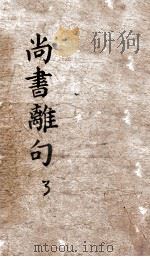 尚書離句
3
www.mtoou.info